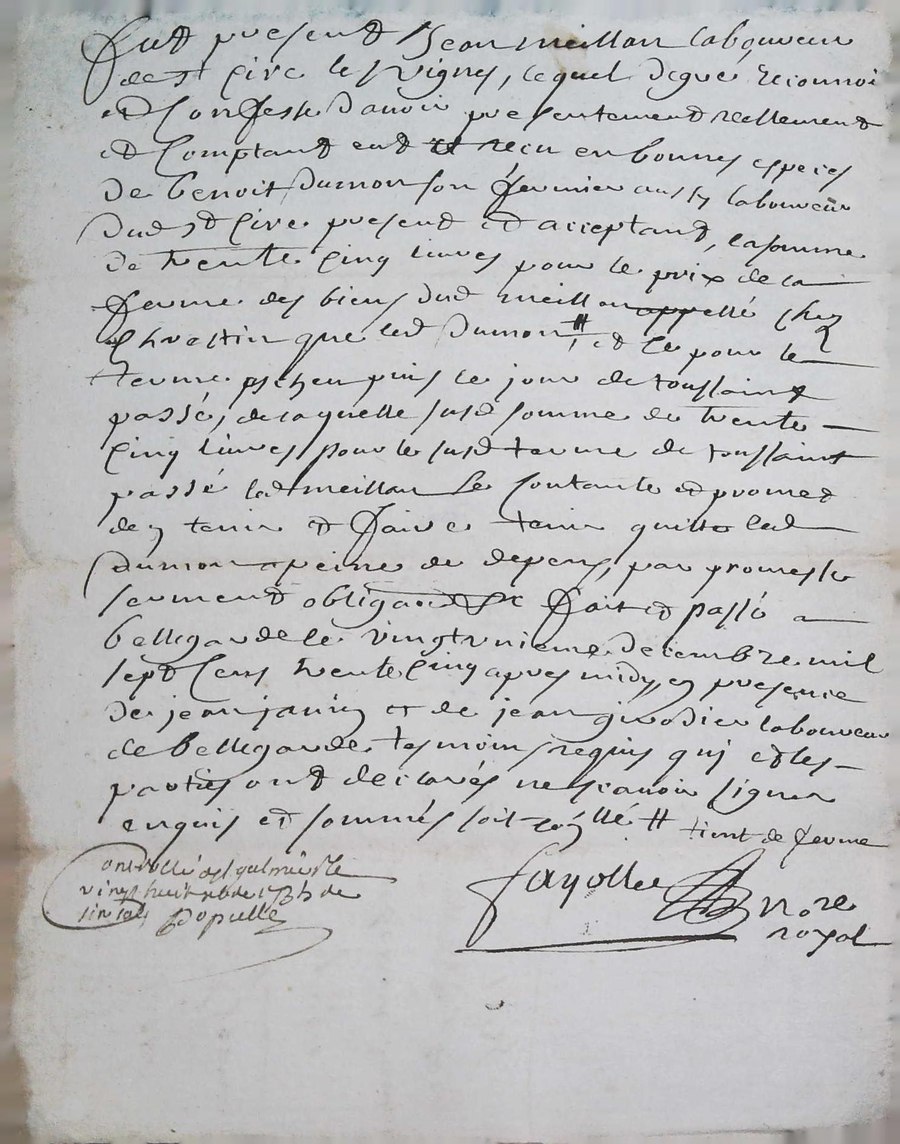 fut present Jean meillan laboureur
de St Cire les Vignes, lequel de gré reconnoi
et Confesse d'avoir presentement reellement
et Comptant eut et receu en bonnes especes
de benoit dumon son fermier aussy laboureur
dud St Cire present et acceptant, la somme
de trente Cinq livres pour le prix de la
ferme des biens dud meillan appellé chez
Chrestin que led dumon # , et Ce pour le
terme escheu puis le jour de toussaint
passé, de laquelle susd somme de trente
Cinq livres pour le susd terme de toussaint
passé led meillan se Contante et promet
de tenir et faire tenir quitte led
dumon a peine de depens, par promesse
serment obligaon &c fait et passé a
bellegarde le vingt unieme decembre mil
sept Cens trente Cinq apres midy, en presence
de jean janin et de jean girodier laboureur
de bellegarde tesmoins requis qui et les
parties ont declarés ne scavoir signer
enquis et sommés soit # tient de ferme
Controllé a St galmier le
vingt huit xbre 1735 de
six sols
fayolle nore
royal